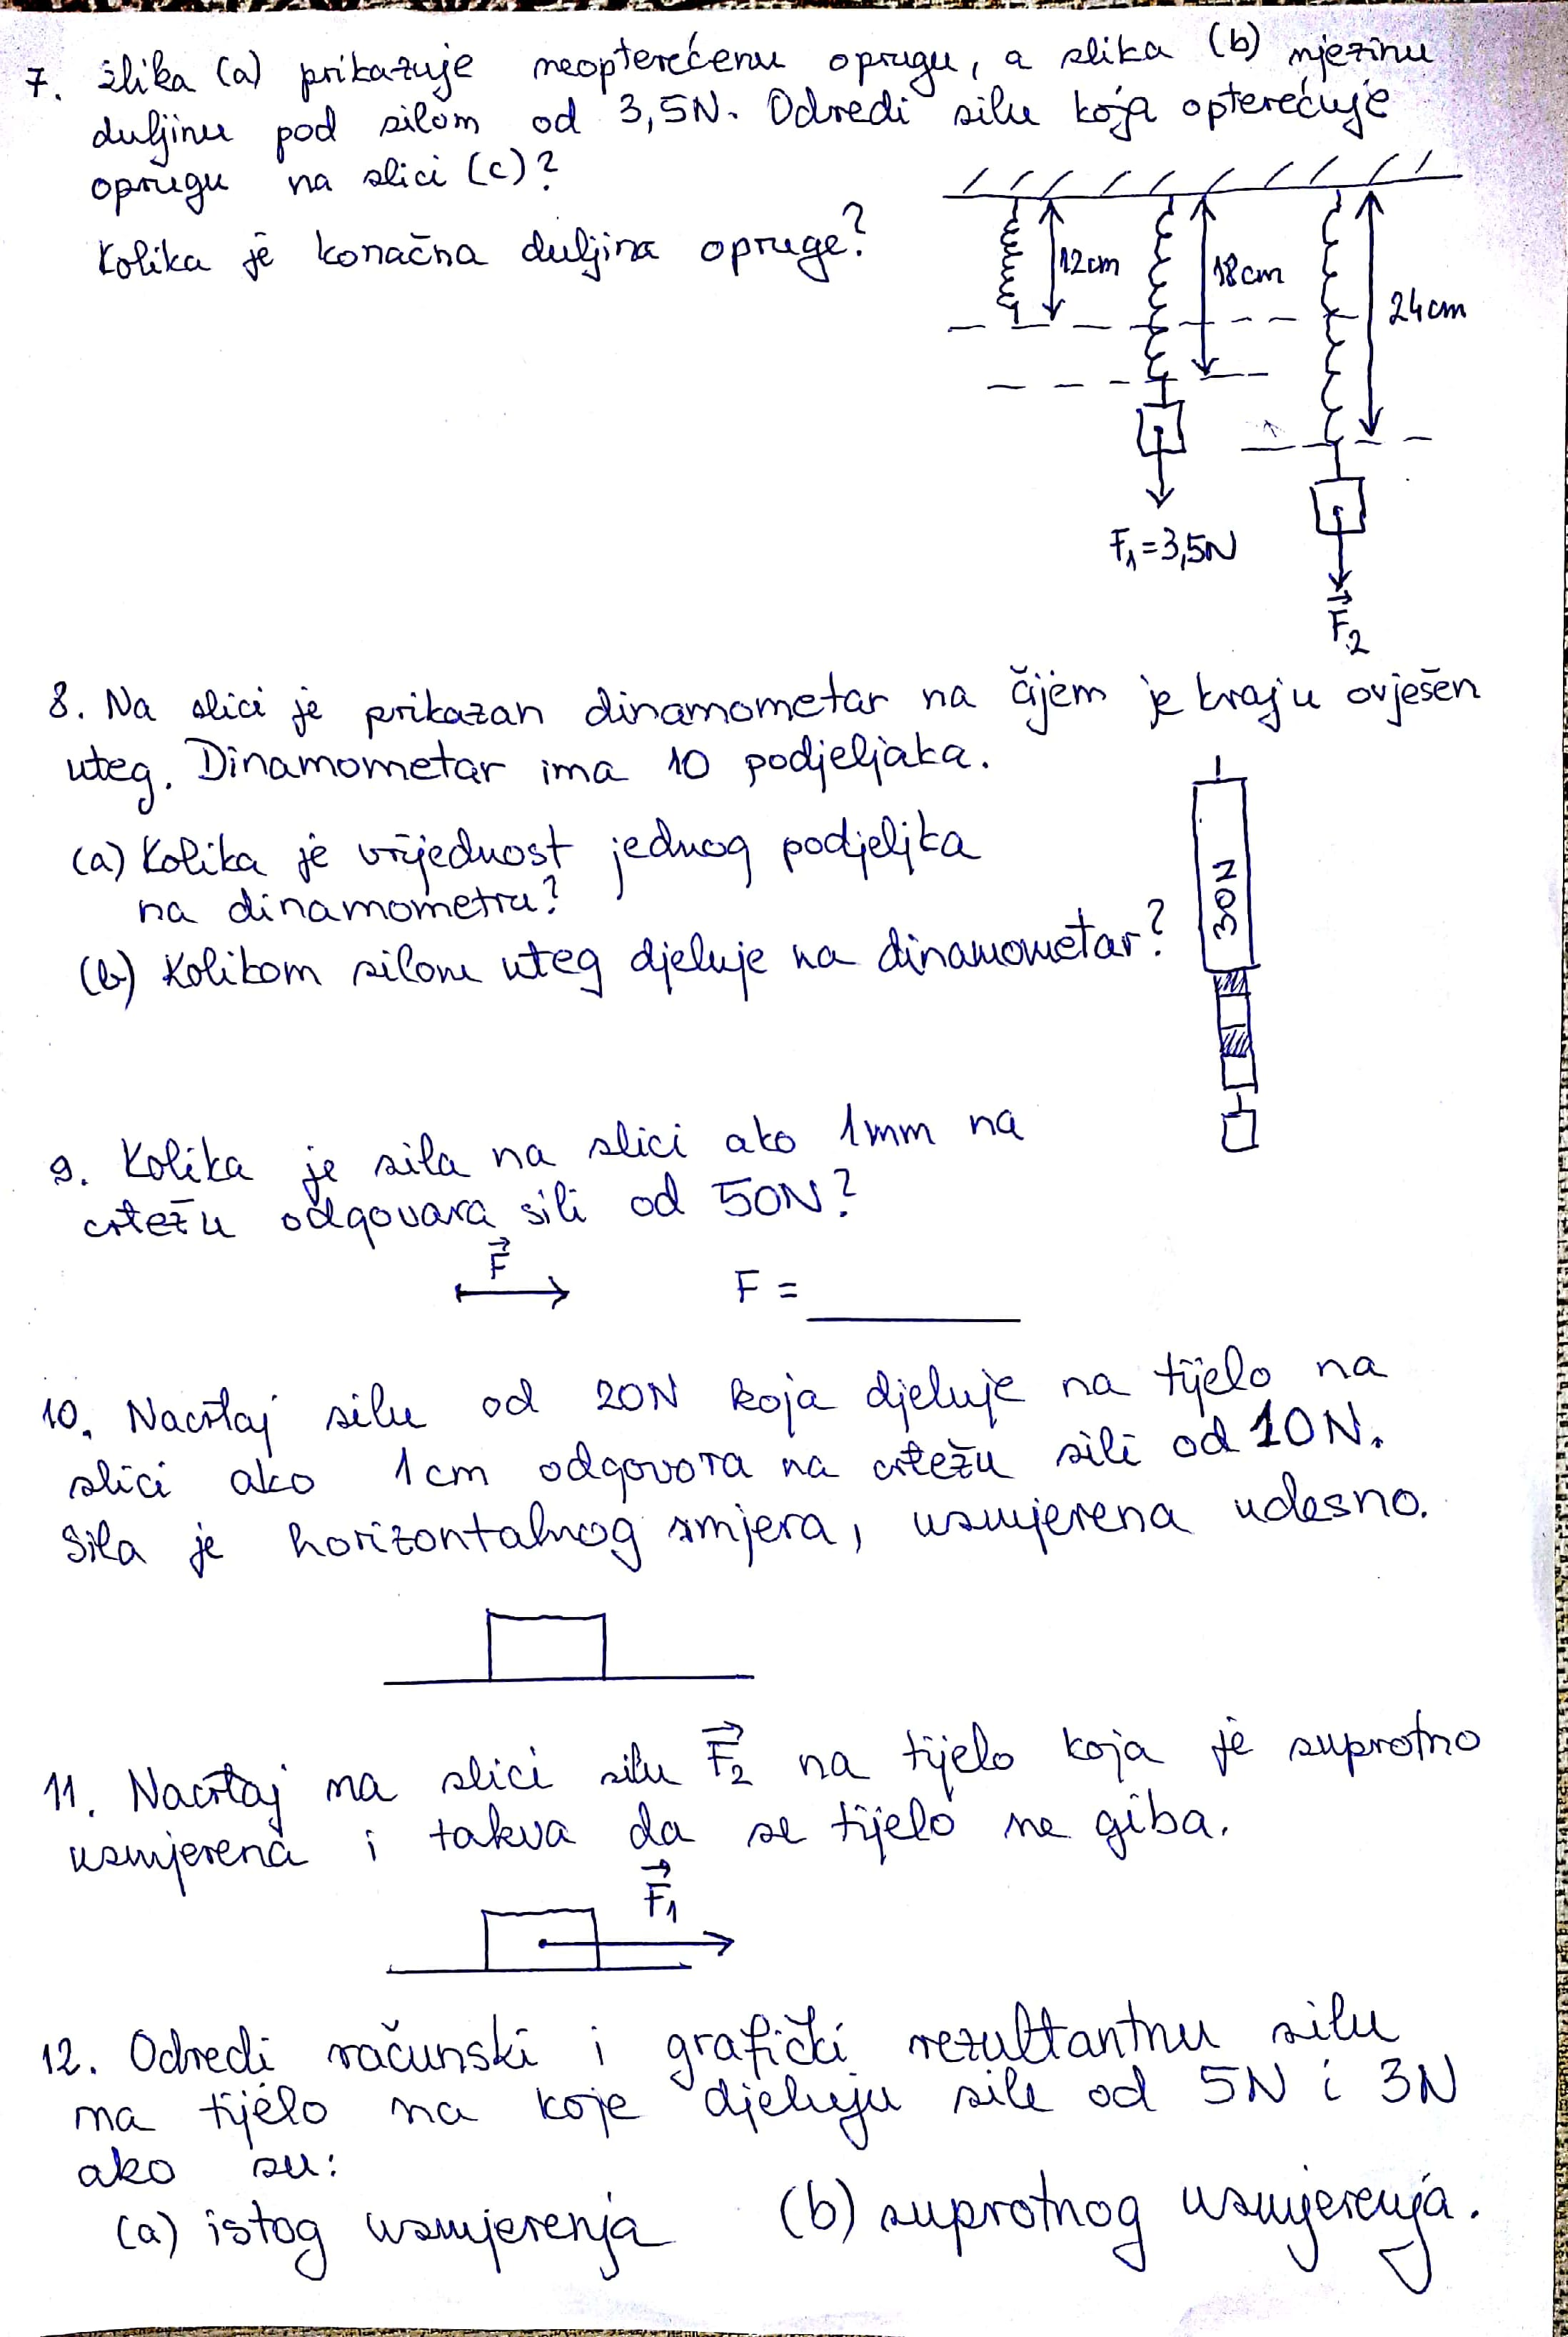 7. Slika (a) prikazuje neopterećenu oprugu, a slika (b) njezinu
duljinu pod silom od 3,5N. Odredi silu koja opterećuje
oprugu na slici (c)?
Kolika je konačna duljina opruge?
12cm
18cm
24cm
F₁=3,5N
F⃗₂
8. Na slici je prikazan dinamometar na čijem je kraju ovješen
uteg. Dinamometar ima 10 podjeljaka.
(a) Kolika je vrijednost jednog podjeljka
na dinamometru?
(b) Kolikom silom uteg djeluje na dinamometar?
30N
9. Kolika je sila na slici ako 1mm na
crtežu odgovara sili od 50N?
F⃗
F = ______
10. Nacrtaj silu od 20N koja djeluje na tijelo na
slici ako 1cm odgovora na crtežu sili od 10N.
Sila je horizontalnog smjera, usmjerena udesno.
11. Nacrtaj na slici silu F⃗₂ na tijelo koja je suprotno
usmjerena i takva da se tijelo ne giba.
F⃗₁
12. Odredi računski i grafički rezultantnu silu
na tijelo na koje djeluju sile od 5N i 3N
ako su:
(a) istog usmjerenja (b) suprotnog usmjerenja.